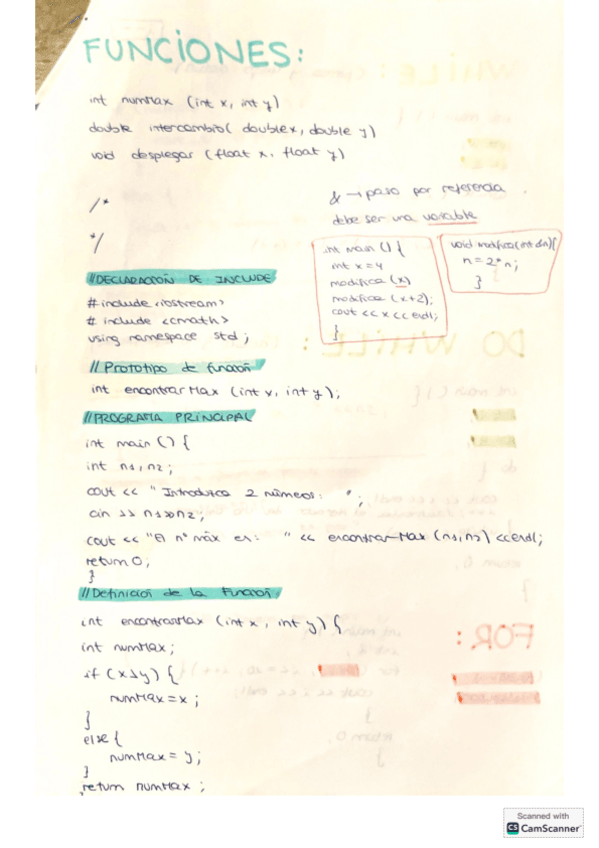 FUNCIONES:
int numMax (int x, int y)
double intercambio( double x, double y)
void desplegar (float x, float y)
/*
*/
& → paso por referencia.
debe ser una variable
int main () {
int x = 4
modifica (x)
modifica (x+2);
cout << x << endl;
}
void modifica(int &n){
n = 2*n;
}
//DECLARACIÓN DE INCLUDE
#include <iostream>
# include <cmath>
using namespace std;
// Prototipo de función
int encontrarMax (int x, int y);
//PROGRAMA PRINCIPAL
int main () {
int n1, n2;
cout << " Introduzca 2 números: ";
cin >> n1>>n2;
cout << "El nº máx es: " << encontrarMax (n1,n2) << endl;
return 0;
}
//Definición de la Función
int encontrarMax (int x, int y) {
int numMax;
if (x>y) {
numMax = x;
}
else {
numMax = y;
}
return numMax;
Scanned with
CS CamScanner